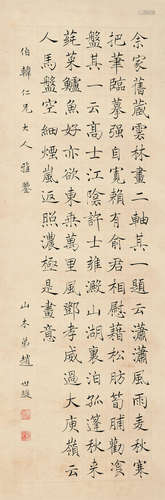 余家舊藏雲林畫二軸其一題云瀟瀟風雨麥秋寒
把筆臨摹强自寬賴有俞君相慰藉松肪筍脯勸
盤其一云高士江陰許士雍澱山湖裏泊孤蓬秋來
蓴菜鱸魚好亦欲東乘萬里風鄧孝威過大庾嶺云
人馬盤空細煙嵐返照濃極是畫意
伯韓仁兄大人雅鑒
山本弟趙世駿